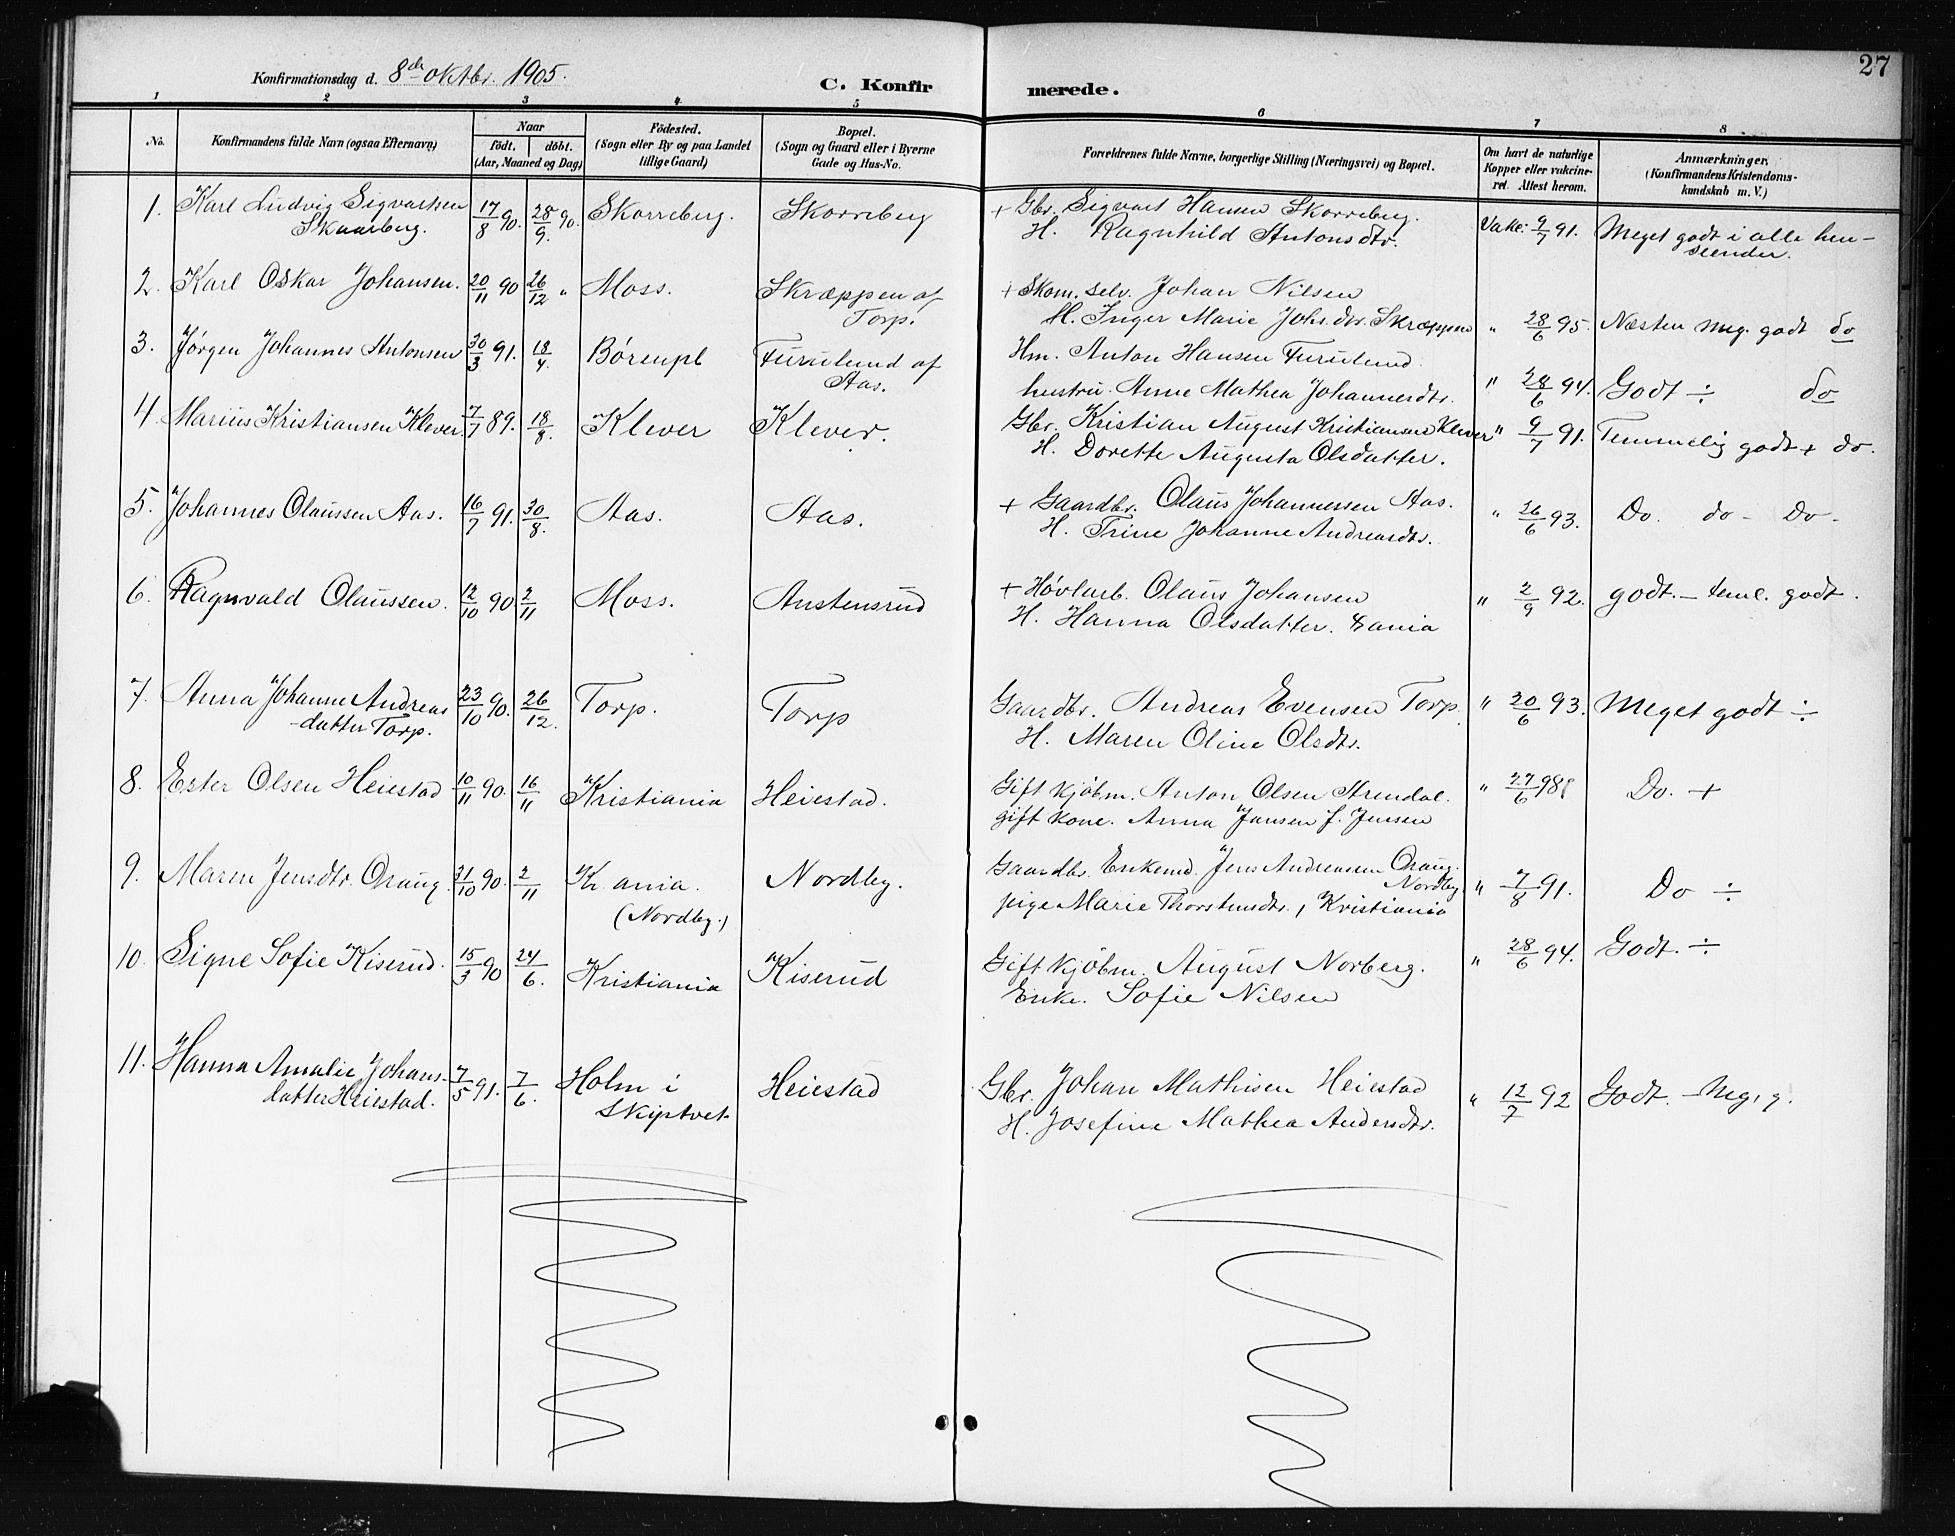 27
Konfirmationsdag d. 8de oktbr. 1905.
C. Konfirmerede.
1 2 3 4 5 6 7 8
No.
Konfirmandens fulde Navn (ogsaa Efternavn)
Naar
födt. döbt.
(Aar, Maaned og Dag)
Födested.
(Sogn eller By og paa Landet
tillige Gaard)
Bopæl.
(Sogn og Gaard eller i Byerne
Gade og Hus-No.
Forældrenes fulde Navne, borgerlige Stilling (Næringsvei) og Bopæl.
Om havt de naturlige
Kopper eller vakcine-
ret. Attest herom.
Anmærkninger.
(Konfirmandens Kristendoms-
kundskab m. V.)
1. Karl Ludvig Sigvartsen 17/8 90. 28/9 90. Skorreberg. Skorreberg + Gbr. Sigvart Hansen Skorreberg. Vake: 9/7 91. Meget godt i alle hen-
Skaarberg. H. Ragnhild Antonsdtr. seender.
2. Karl Oskar Johansen. 20/11 90 26/12 " Moss. Skræppen af + Skom. selv. Johan Nilsen
Torp. H. Inger Marie Joh. dtr. Skræppen " 28/6 95. Næsten meg. godt do
3. Jørgen Johannes Antonsen 30/3 91. 18/4. Børenpl Furulund af Hm. Anton Hansen Furulund
Aas. hustru. Anne Mathea Johannesdtr. " 28/6 94. Godt ÷ do
4. Marius Kristiansen Klever. 7/7 89. 18/8. Klever Klever. Gbr. Kristian August Kristiansen Klever " 9/7 91. Temmelig godt + do.
H. Dorette Augusta Olsdatter.
5. Johannes Olaussen Aas. 16/7 91. 30/8. Aas. Aas. + Gaardbr. Olaus Johannessen Aas. " 26/6 93. Do. do - Do-
H. Trine Johanne Andreasdtr.
6. Ragnvald Olaussen. 12/10 90. 2/11 Moss. Austensrud + Høvlarb. Olaus Johansen " 2/9 92. godt. - teml. godt.
H. Hanna Olsdatter.
7. Anna Johanne Andreas 23/10 90. 26/12. Torp. Torp Gaardbr. Andreas Evensen Torp. " 20/6 93. Meget godt ÷
-datter Torp. H. Maren Oline Olsdtr.
8. Ester Olsen Heiestad 10/11 90. 16/11 Kristiania Heiestad. Gift Kjøbm. Anton Olsen " 27/6 98 Do. +
gift kone. Anna Jansen f. Jensen
9. Maren Jensdtr. Oraug. 31/10 90. 2/11 Kr. ania. Nordby. Gaardbr. Enkemd. Jens Andreassen Oraug. " 7/8 91. Do ÷
Nordby.
(Nordby.) pige Marie Thorstensdtr., Kristiania
10. Signe Sofie Kiserud. 15/3 90 24/6. Kristiania Kiserud Gift Kjøbm. August Norberg. " 28/6 94. Godt. ÷
Enke. Sofie Nilsen
11. Hanna Amalie Johans- 7/5 91. 7/6. Holm i Heiestad Gbr. Johan Mathisen Heiestad " 12/7 92 Godt. - Meg. g.
datter Heiestad. Skiptvet H. Josefine Mathea Andersdtr.